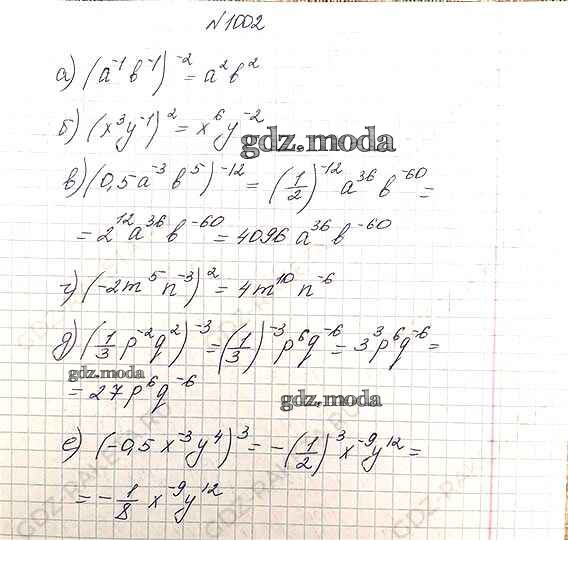 №1002
а) (a⁻¹b⁻¹)⁻² = a²b²
б) (x³y⁻¹)² = x⁶y⁻²
gdz.moda
в) (0,5a⁻³b⁵)⁻¹² = (1/2)⁻¹² a³⁶ b⁻⁶⁰ =
= 2¹²a³⁶b⁻⁶⁰ = 4096 a³⁶ b⁻⁶⁰
г) (-2m⁵n⁻³)² = 4m¹⁰n⁻⁶
д) (1/3 p⁻²q²)⁻³ = (1/3)⁻³p⁶q⁻⁶ = 3³p⁶q⁻⁶ =
gdz.moda
= 27p⁶q⁻⁶
gdz.moda
е) (-0,5x⁻³y⁴)³ = -(1/2)³x⁻⁹y¹² =
= -1/8 x⁻⁹y¹²